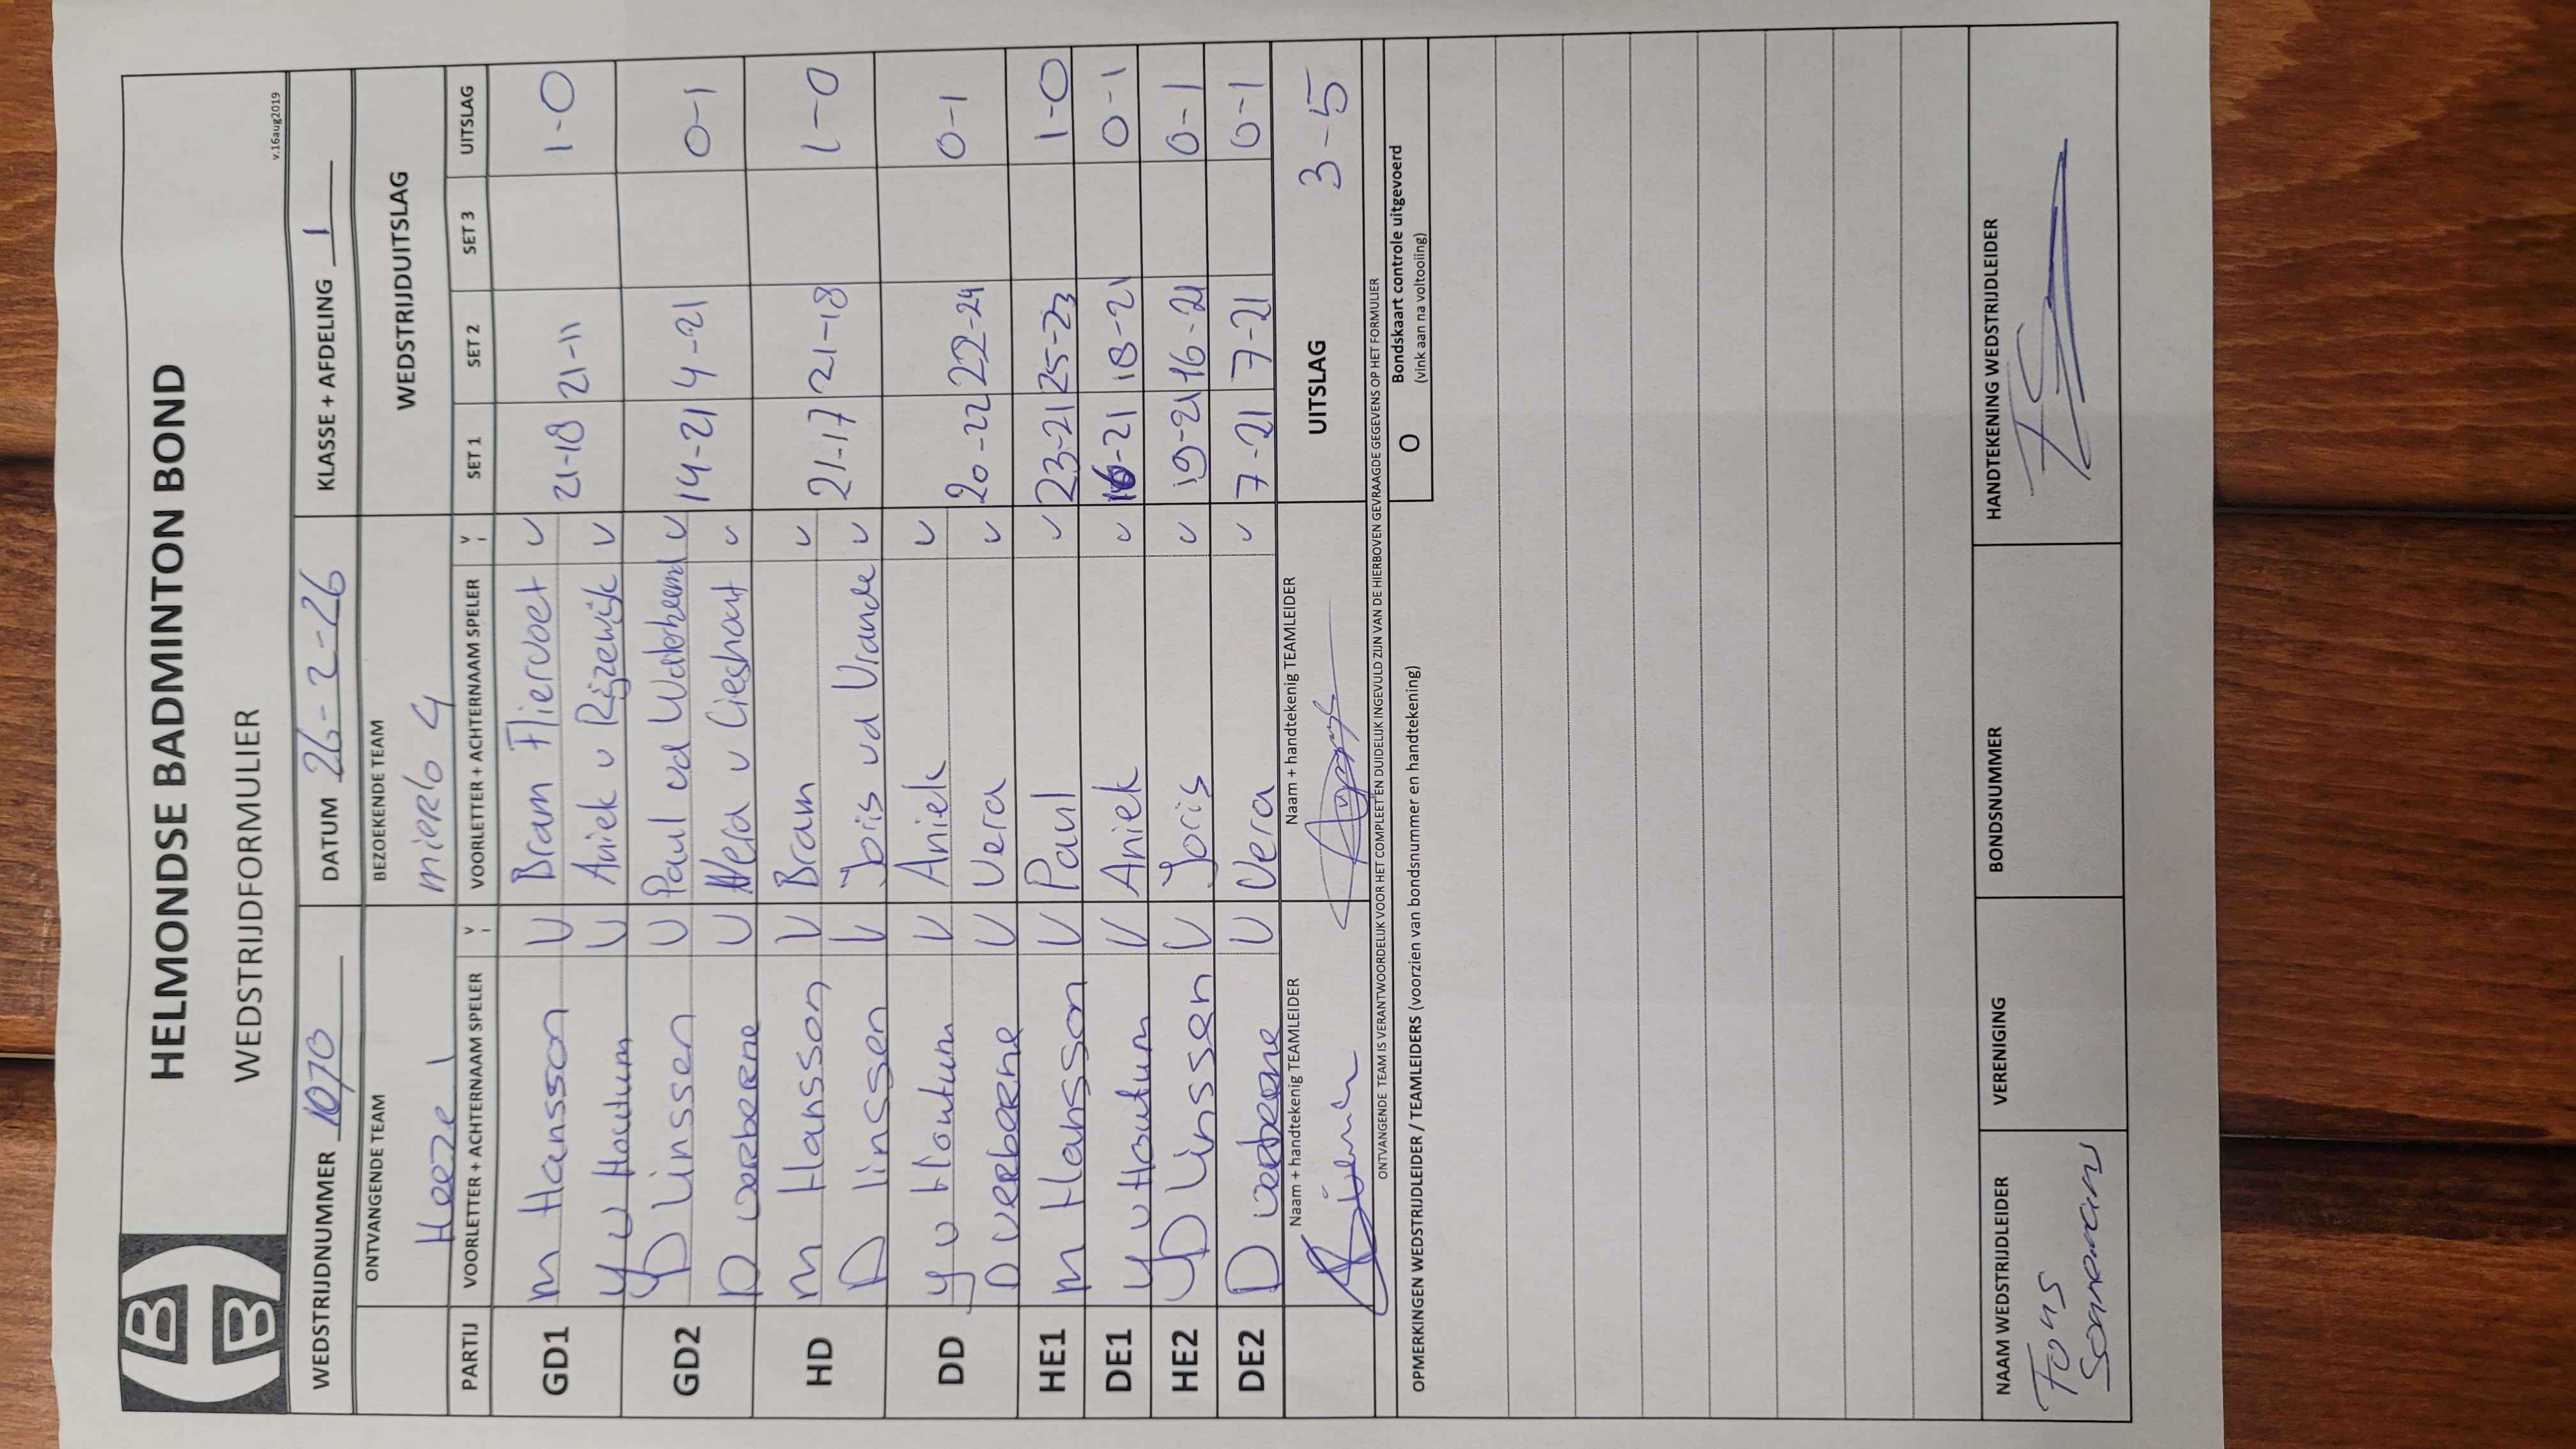 HELMONDSE BADMINTON BOND
WEDSTRIJDFORMULIER
v.16aug2019
WEDSTRIJDNUMMER 1070 DATUM 26-2-26 KLASSE + AFDELING 1
ONTVANGENDE TEAM BEZOEKENDE TEAM WEDSTRIJDUITSLAG
Heeze 1 mierlo 4
PARTIJ VOORLETTER + ACHTERNAAM SPELER V VOORLETTER + ACHTERNAAM SPELER V SET 1 SET 2 SET 3 UITSLAG
GD1 M Hansson V Bram Fliervoet V 21-18 21-11 1-0
Y v Houtum V Aniek v Rijzewijk V
GD2 D Linssen V Paul vd V 14-21 4-21 0-1
D verberne V Vera v Lieshout V
HD M Hansson V Bram V 21-17 21-18 1-0
D linssen V Joris vd Vrande V
DD Y v Houtum V Aniek V 20-22 22-24 0-1
D verberne V Vera V
HE1 M Hansson V Paul V 23-21 25-23 1-0
DE1 Y v Houtum V Aniek V 16-21 18-21 0-1
HE2 D Linssen V Joris V 19-21 16-21 0-1
DE2 D verberne V Vera V 7-21 7-21 0-1
Naam + handtekenig TEAMLEIDER Naam + handtekenig TEAMLEIDER UITSLAG 3-5
ONTVANGENDE TEAM IS VERANTWOORDELIJK VOOR HET COMPLEET EN DUIDELIJK INGEVULD ZIJN VAN DE HIERBOVEN GEVRAAGDE GEGEVENS OP HET FORMULIER
O Bondskaart controle uitgevoerd
(vink aan na voltooiing)
OPMERKINGEN WEDSTRIJDLEIDER / TEAMLEIDERS (voorzien van bondsnummer en handtekening)
NAAM WEDSTRIJDLEIDER VERENIGING BONDSNUMMER HANDTEKENING WEDSTRIJDLEIDER
Fons
Sonemans